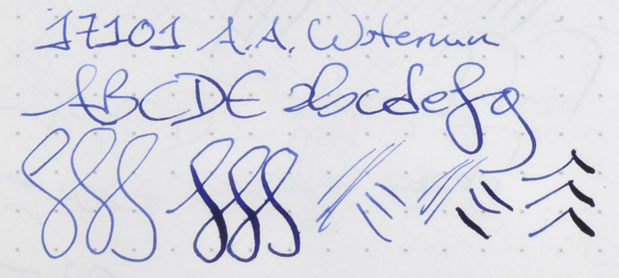 17101 A.A. Waterman
ABCDE abcdefg